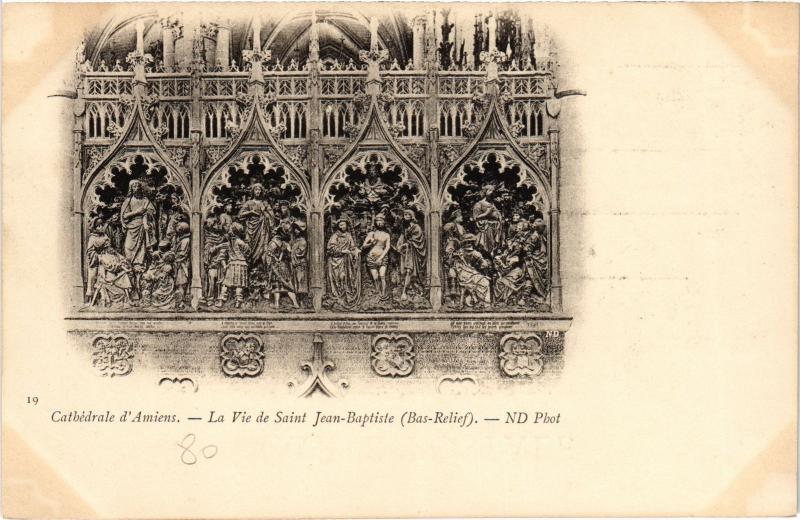 ND
19
Cathédrale d'Amiens. — La Vie de Saint Jean-Baptiste (Bas-Relief). — ND Phot
80